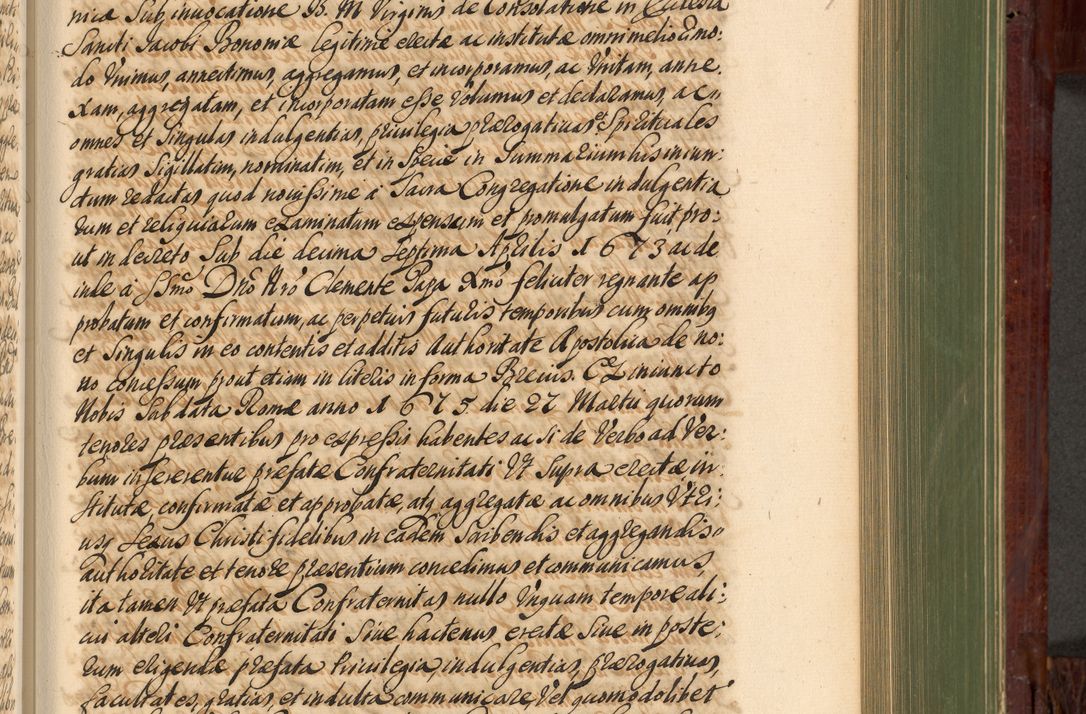 nicæ Sub invocatione B. M Virginis de Consolatione in Ecclesia
Sancti Jacobi Bononiæ legitimè electæ ac institutæ omni meliori mo-
do Vnimus, annectimus, aggregamus, et incorporamus, ac Vnitam, anne-
xam, aggregatam, et incorporatam esse volumus et declaramus, ac
omnes et singulas indulgentias, privilegia prærogativas et Spirituales
gratias sigillatim, nominatim, et in specie in Summarium his iniun:
ctum redactas quod novissime à Sacra Congregatione indulgentia
rum et reliquiarum examinatam expensum et promulgatum fuit, pro:
ut in decreto Sub die decima Septima Aprilis 1673 ac de
inde à SSmo Dno Nro Clemente Papa Xmo feliciter regnante ap
probatum et confirmatum, ac perpetuis futuris temporibus cum omnibq
et Singulis in eo contentis et additis Authoritate Apostolica de no:
no concessum prout etiam in literis in forma Brevis. Ex iniuncto
Nobis Sub data Romæ anno 1675 die 27 Martii quorum
tenores præsentibus pro expressis habentes ac si de Verbo ad Ver:
bum insererentur præfatæ Confraternitati Vt Supra erectæ in:
stitutæ confirmatæ et approbatæ, atq aggregatæ ac omnibus Vtri:
usq Sexus Christi fidelibus in eadem Scribendis et aggregandis
authoritate et tenore præsentium concedimus et communicamus,
ita tamen Vt præfata Confraternitas nullo Vnquam tempore ali:
cui alteri Confraternitati Sive hactenus erectæ Sive in poste:
rum erigendæ præfata Privilegia, indulgentias, prærogativas,
facultates, gratias, et indulta communicare, Vel quomodolibet